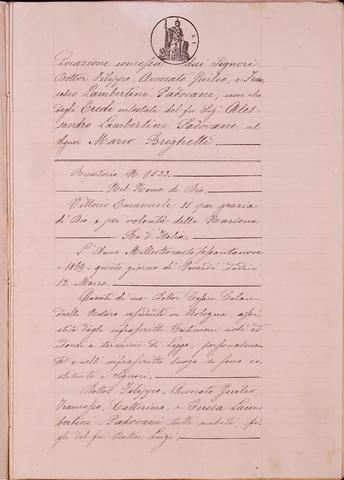 Locazione concessa dai Signori
Dottor Filippo, Avvocato Giulio, e Fran-
cesco Lambertini Padovani, non che
dagli Eredi intestati del fu Sig. Ales-
sandro Lambertini Padovani, al
Signor Marco Brighetti
Repertorio N. 9533.
Nel Nome di Dio.
Vittorio Emanuele II per grazia
di Dio e per volontà della Nazione
Re d'Italia.
L'Anno Milleottocento sessantanove
1869. questo giorno di Venerdì dodici
12. Marzo.
Avanti di me Dottor Cesare
Notaro residente in Bologna, assi-
stito dagli infrascritti Testimoni noti ed
idonei a termini di Legge, personalmen-
te e nell'infrascritto luogo si sono co-
stituiti i Signori.
Dottor Filippo, Avvocato Giulio,
Francesco, Catterina, e Teresa Lam-
bertini-Padovani, tutti nobili, fi-
gli del fu Dottor Luigi,